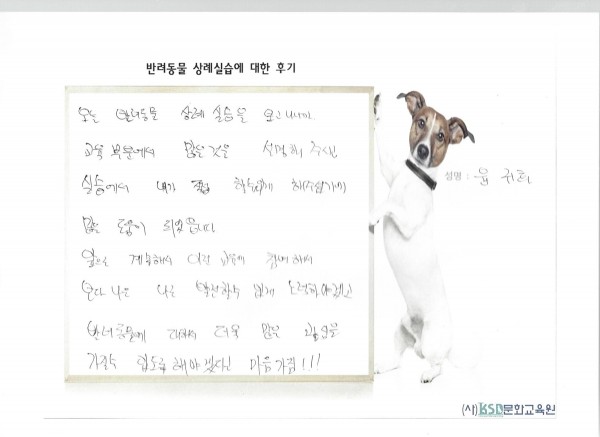 반려동물 상례실습에 대한 후기
오늘 반려동물 상례 실습을 보고 나니까
교육 부분에서 많은 것을 설명해 주신
실습에서 내가 직접 할수있게 해
많은 도움이 되었습니다
앞으로 계속해서 이런 참여해서
보다 나은 나를 발전할수 있게 노력하야겠고
반려동물에 대해서 더욱 많은 관심을
가질수 있도록 해야겠다는 마음가짐!!!
성명 : 윤 귀희
(사)KSD문화교육원